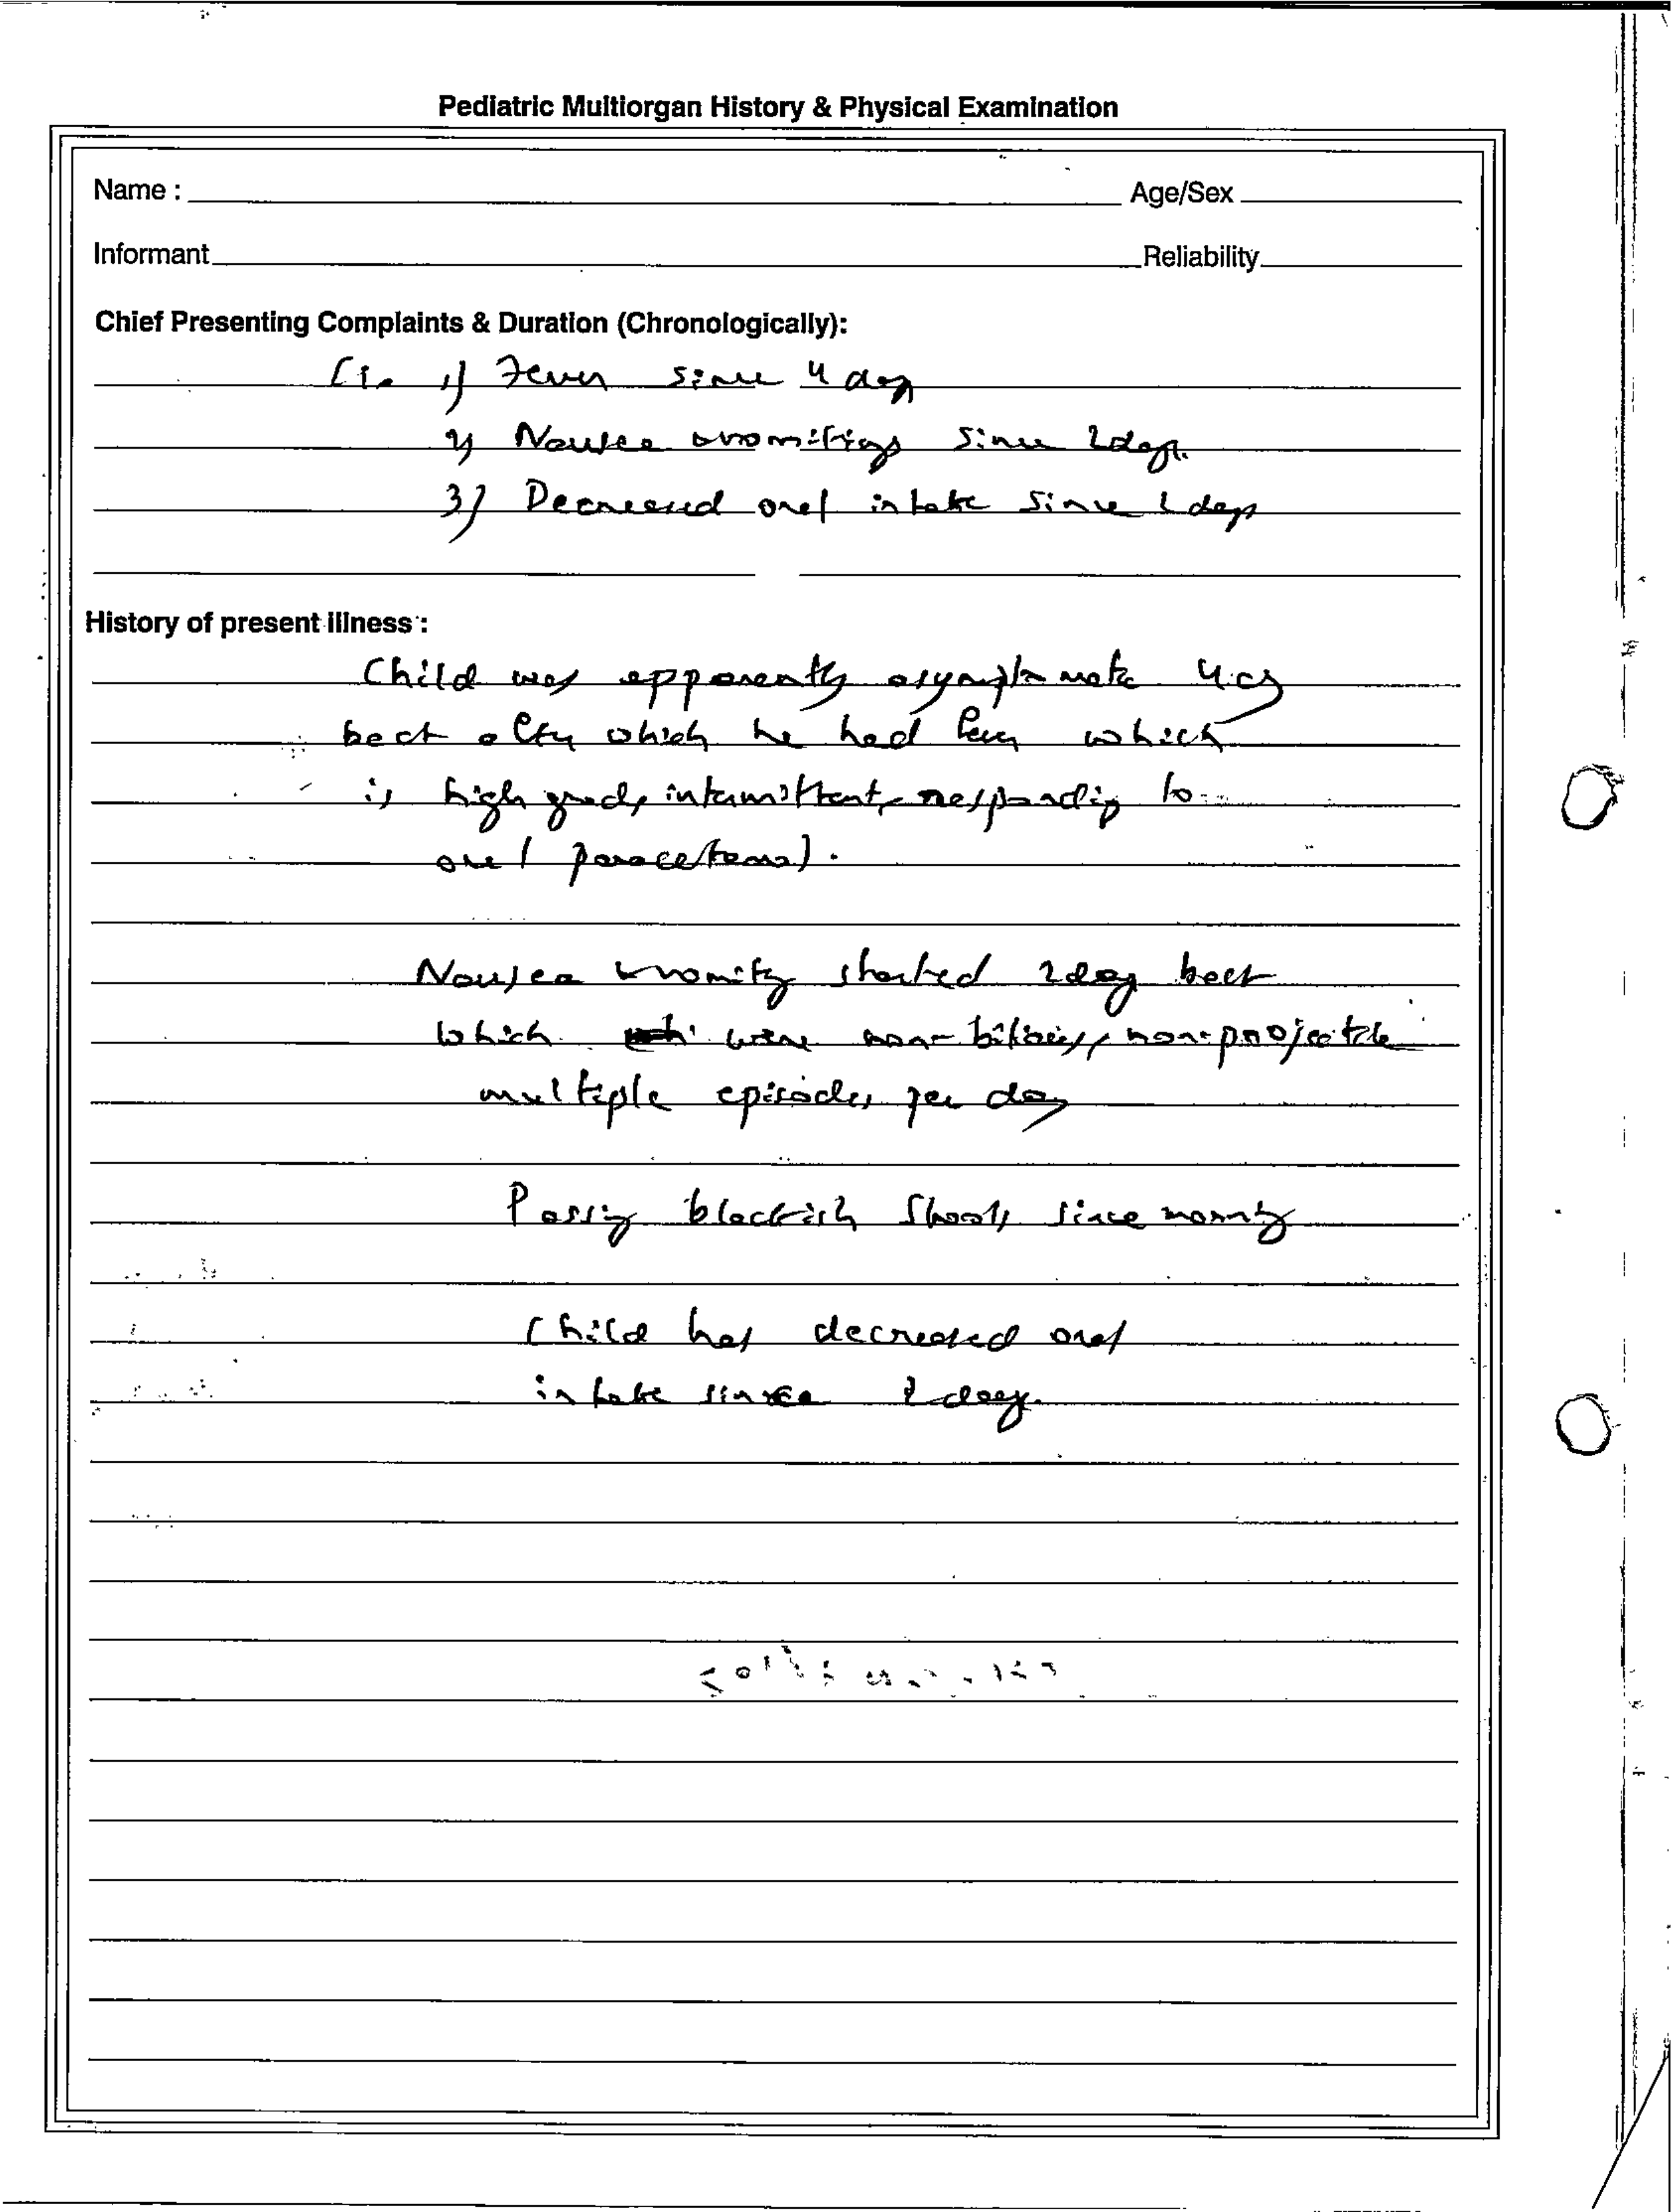 Pediatric Multiorgan History & Physical Examination
Name : Age/Sex
Informant Reliability
Chief Presenting Complaints & Duration (Chronologically):
1) Fever since 4 day
2) Nausea & vomitings since 2 days.
3) Decreased oral intake since 2 days
History of present illness :
Child was apparently asymptomatic 4
back after which he had fever which
is high grade, intermittent, responding to
oral paracetamol.
Nausea & vomiting started 2 day back
which were non-bilious, non-projectile
multiple episodes per day
Passing blackish stools since morning
Child has decreased oral
intake since 2 days.